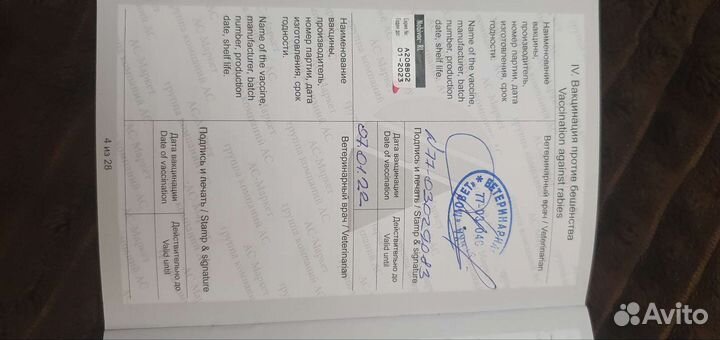 IV. Вакцинация против бешенства
Vaccination against rabies
Наименование
вакцины,
производитель,
номер партии, дата
изготовления, срок
годности.
Name of the vaccine,
manufacturer, batch
number, production
date, shelf life.
A208B02
01-2023
Ветеринарный врач / Veterinarian
ВЕТЕРИНАРН
N77-03029083
Подпись и печать / Stamp & signature
Дата вакцинации
Date of vaccination
07.01.22
Действительно до
Valid until
Наименование
вакцины,
производитель,
номер партии, дата
изготовления, срок
годности.
Name of the vaccine,
manufacturer, batch
number, production
date, shelf life.
Ветеринарный врач / Veterinarian
Подпись и печать / Stamp & signature
Дата вакцинации
Date of vaccination
Действительно до
Valid until
4 из 28
Avito